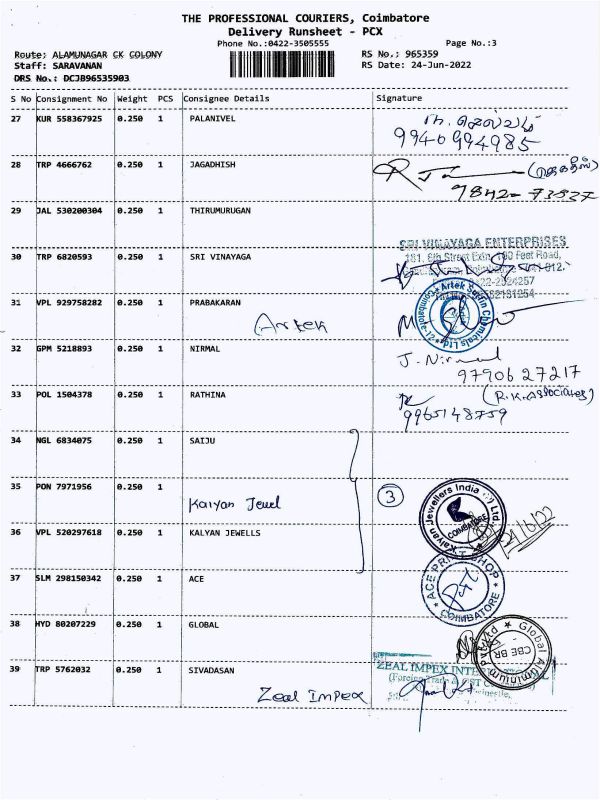 THE PROFESSIONAL COURIERS, Coimbatore
Delivery Runsheet - PCX
Phone No.:0422-3505555
Page No.:3
Route; ALAMUNAGAR CK COLONY
RS No.; 965359
Staff: SARAVANAN
RS Date: 24-Jun-2022
DRS No.: DCJB96535903
S No Consignment No Weight PCS Consignee Details Signature
27 KUR 558367925 0.250 1 PALANIVEL
9940994985
28 TRP 4666762 0.250 1 JAGADHISH
(ஜெகதீஸ்)
9842-73827
29 JAL 530200304 0.250 1 THIRUMURUGAN
SRI VINAYAGA ENTERPRISES
30 TRP 6820593 0.250 1 SRI VINAYAGA
31 VPL 929758282 0.250 1 PRABAKARAN
Artek
Chemicals Ltd
Coimbatore-12
32 GPM 5218893 0.250 1 NIRMAL
J. Nirmal
9790627217
33 POL 1504378 0.250 1 RATHINA
(R.K.Associates)
9965148759
34 NGL 6834075 0.250 1 SAIJU
35 PON 7971956 0.250 1
Kalyan Jewel
3
Kalyan Jewellers India Ltd.
COIMBATORE
24/6/22
36 VPL 520297618 0.250 1 KALYAN JEWELLS
37 SLM 298150342 0.250 1 ACE
ACE PRINT SHOP
COIMBATORE
38 HYD 80207229 0.250 1 GLOBAL
Global Aluminium Pvt Ltd
CBE BR
39 TRP 5762032 0.250 1 SIVADASAN
Zeal Impex
ZEAL IMPEX